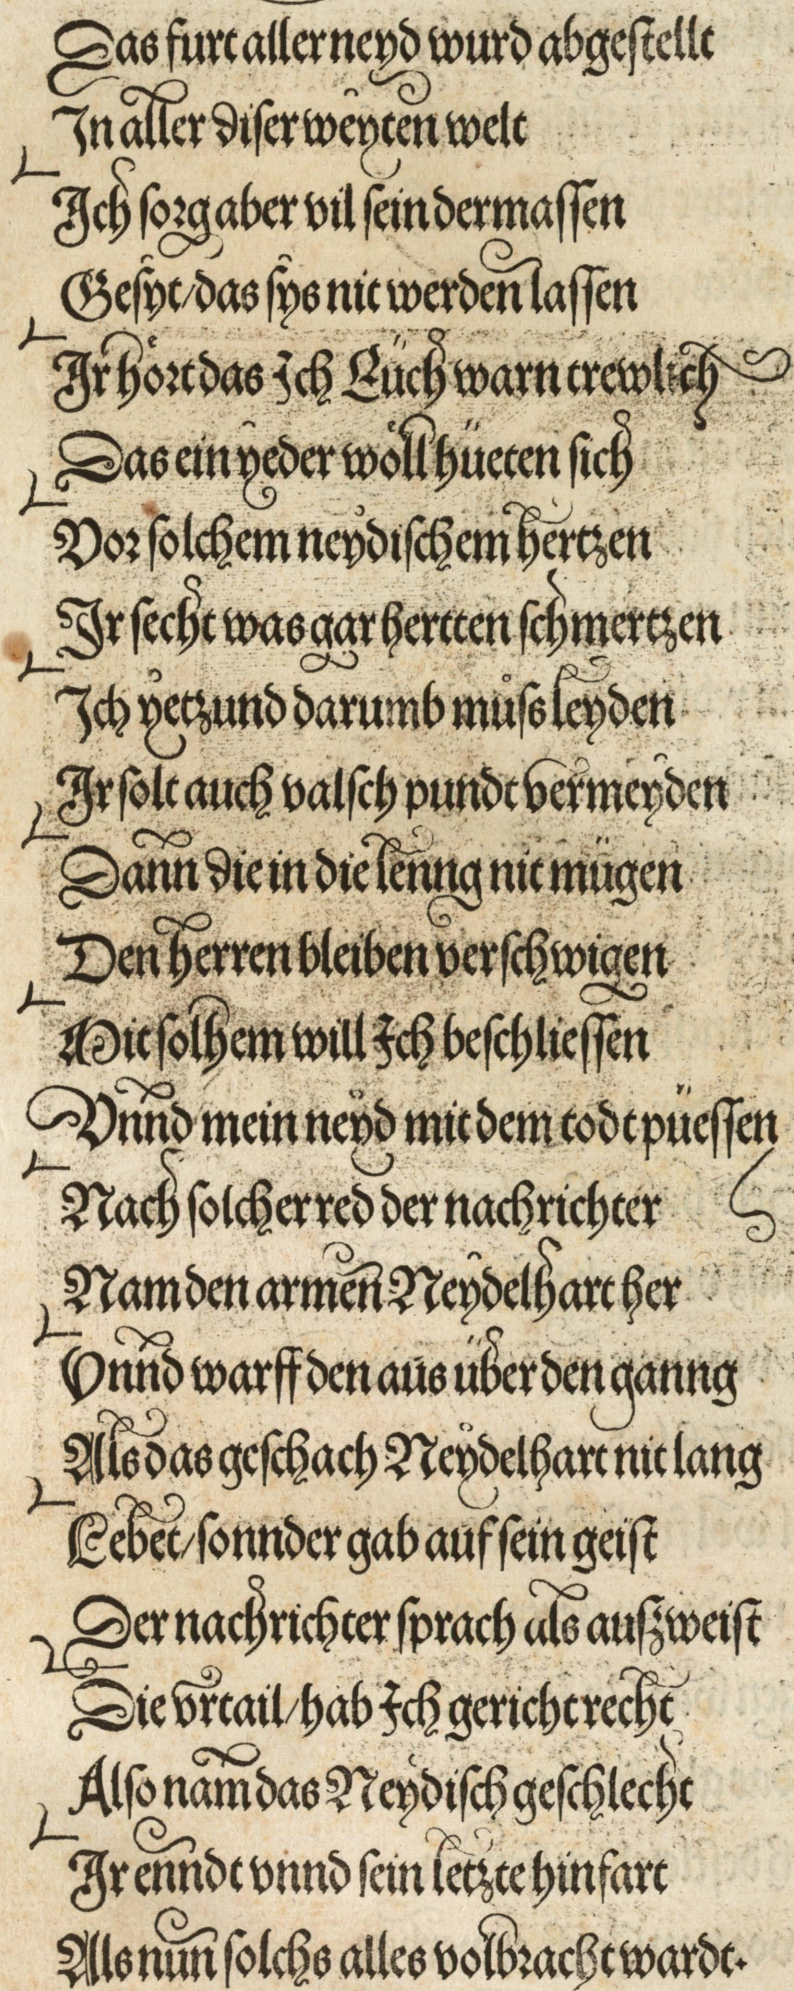 Das furt aller neyd wurd abgestellt
In aller diser weyten welt
Ich sorg aber vil sein dermassen
Gesyt/das sys nit werden lassen
Ir hört das Ich Eüch warn trewlich
Das ein yeder wöll hüeten sich
Vor solchem neydischem hertzen
Ir secht was gar hertten schmertzen
Ich yetzund darumb muſs leyden
Ir solt auch valsch pundt vermeyden
Dann die in die lenng nit mügen
Den herren bleiben verschwigen
Mit solhem will Ich beschliessen
Vnnd mein neyd mit dem todt püessen
Nach solcher red der nachrichter
Nam den armen Neydelhart her
Vnnd warff den aus über den ganng
Als das geschach Neydelhart nit lang
Lebet/sonnder gab auf sein geist
Der nachrichter sprach als auſzweist
Die vrtail/hab Ich gericht recht
Also nam das Neydisch geschlecht
Ir enndt vnnd sein letzte hinfart
Als nun solchs alles volbracht wardt.